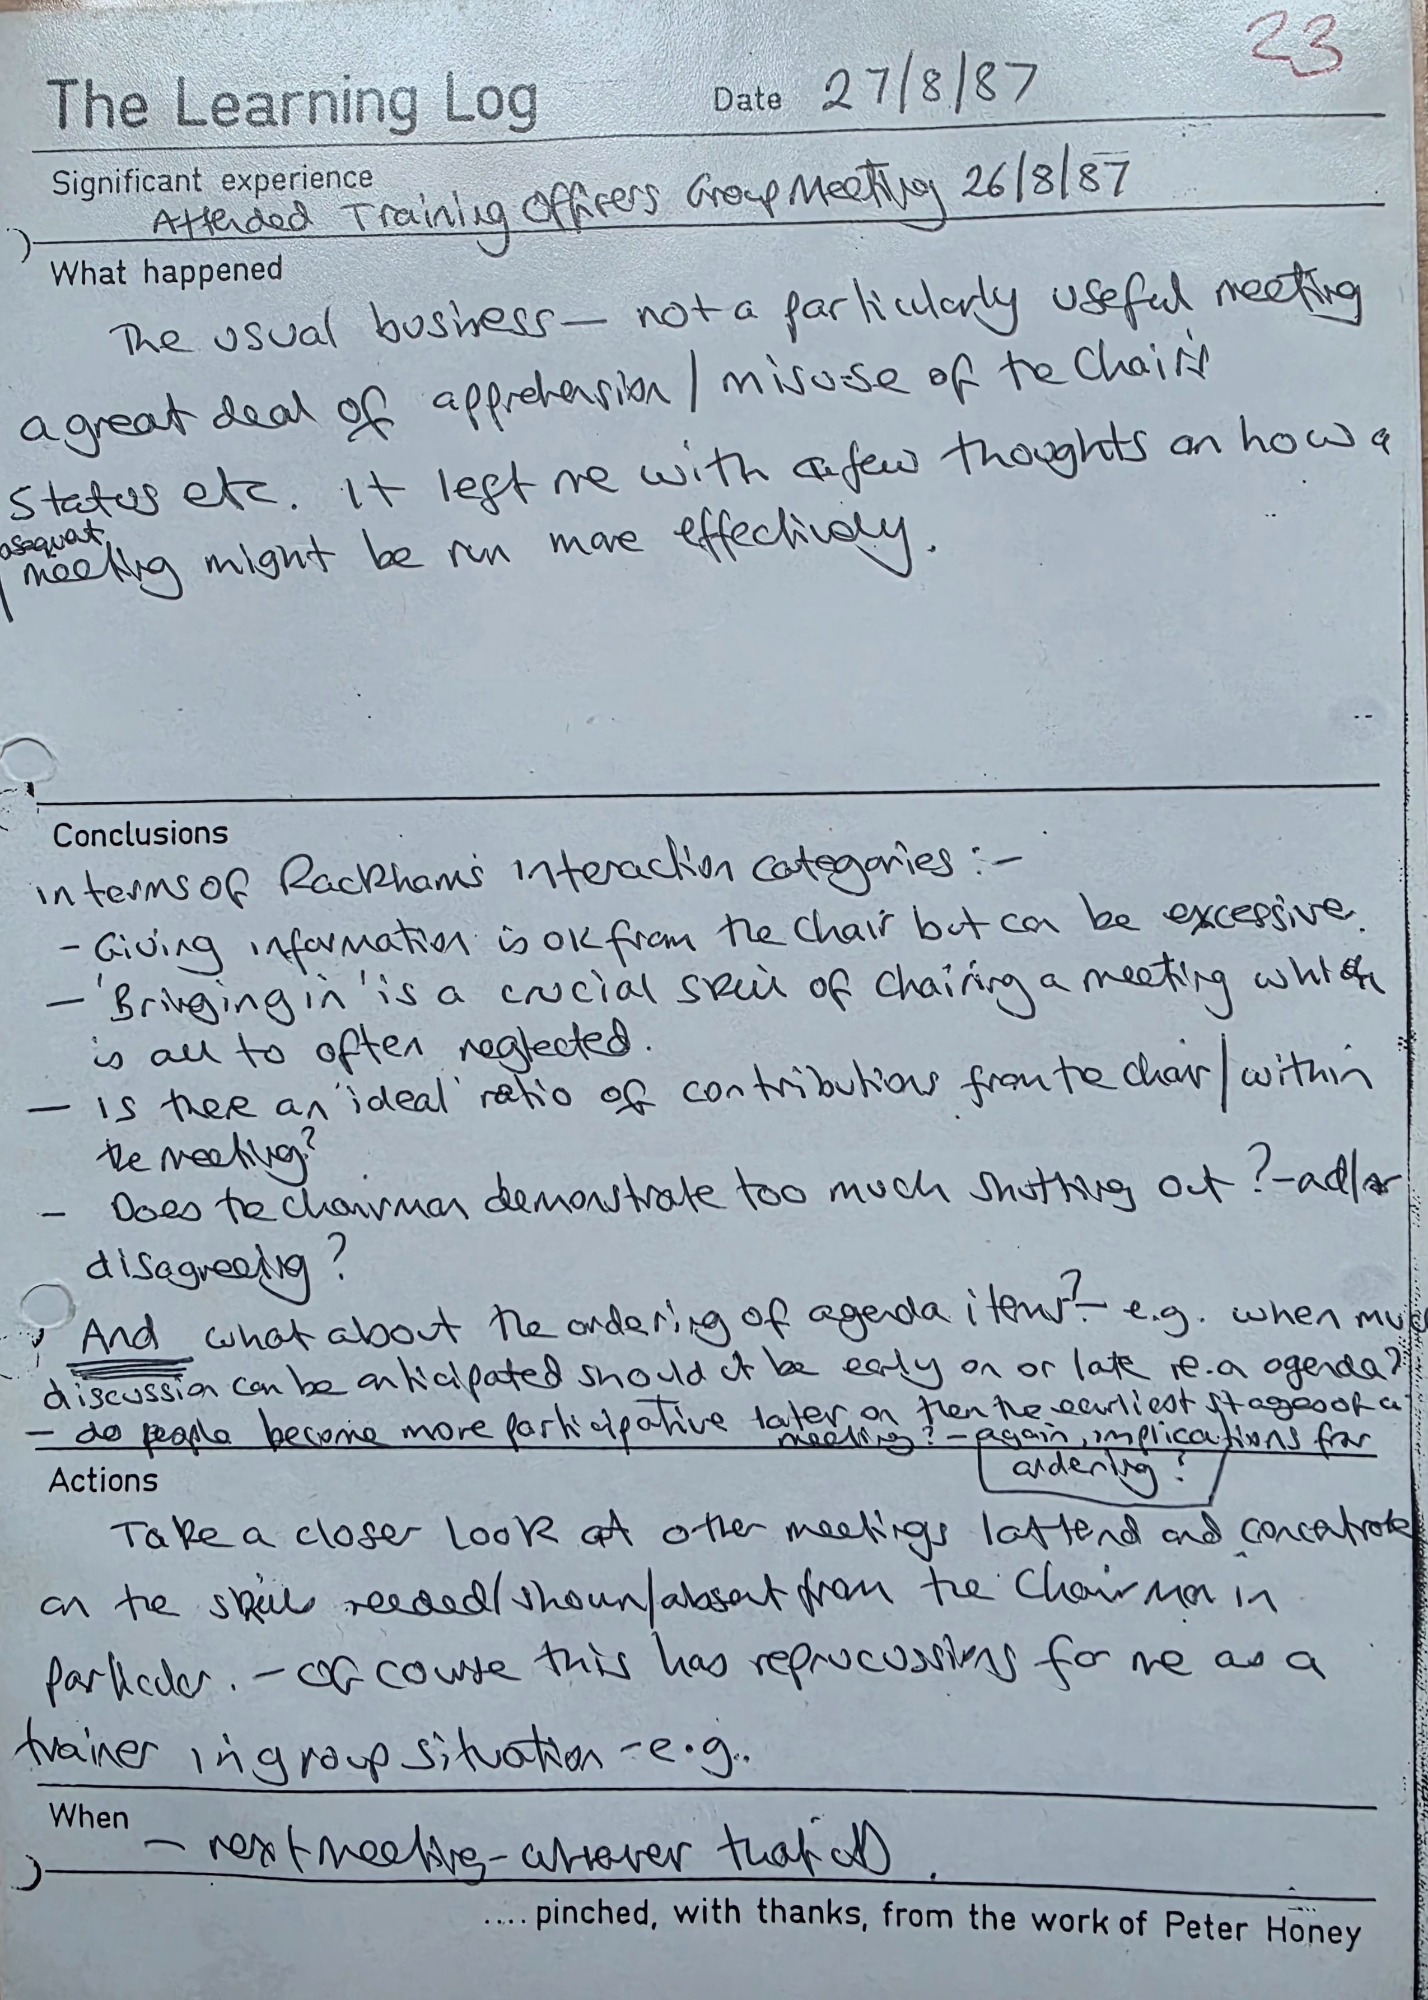 23
The Learning Log Date 27/8/87
Significant experience
Attended Training Officers Group Meeting 26/8/87
What happened
The usual business — not a particularly useful meeting
a great deal of apprehension / misuse of the Chair's
status etc. It left me with a few thoughts on how a
meeting might be run more effectively.
Conclusions
in terms of Rackham's interaction categories :-
- Giving information is ok from the chair but can be excessive.
- 'Bringing in' is a crucial skill of chairing a meeting which
is all to often neglected.
- is there an 'ideal' ratio of contributions from the chair / within
the meeting?
- Does the chairman demonstrate too much shutting out? - and/or
disagreeing?
And what about the ordering of agenda items? - e.g. when
discussion can be anticipated should it be early on or late re. a agenda?
- do people become more participative later on then the earliest stages of a
meeting? - again, implications for
ordering?
Actions
Take a closer look at other meetings I attend and concentrate
on the skills needed/shown/absent from the Chairman in
particular. - Of course this has reprocussions for me as a
trainer in group situation - e.g..
When
- next meeting - whenever that is.
.... pinched, with thanks, from the work of Peter Honey